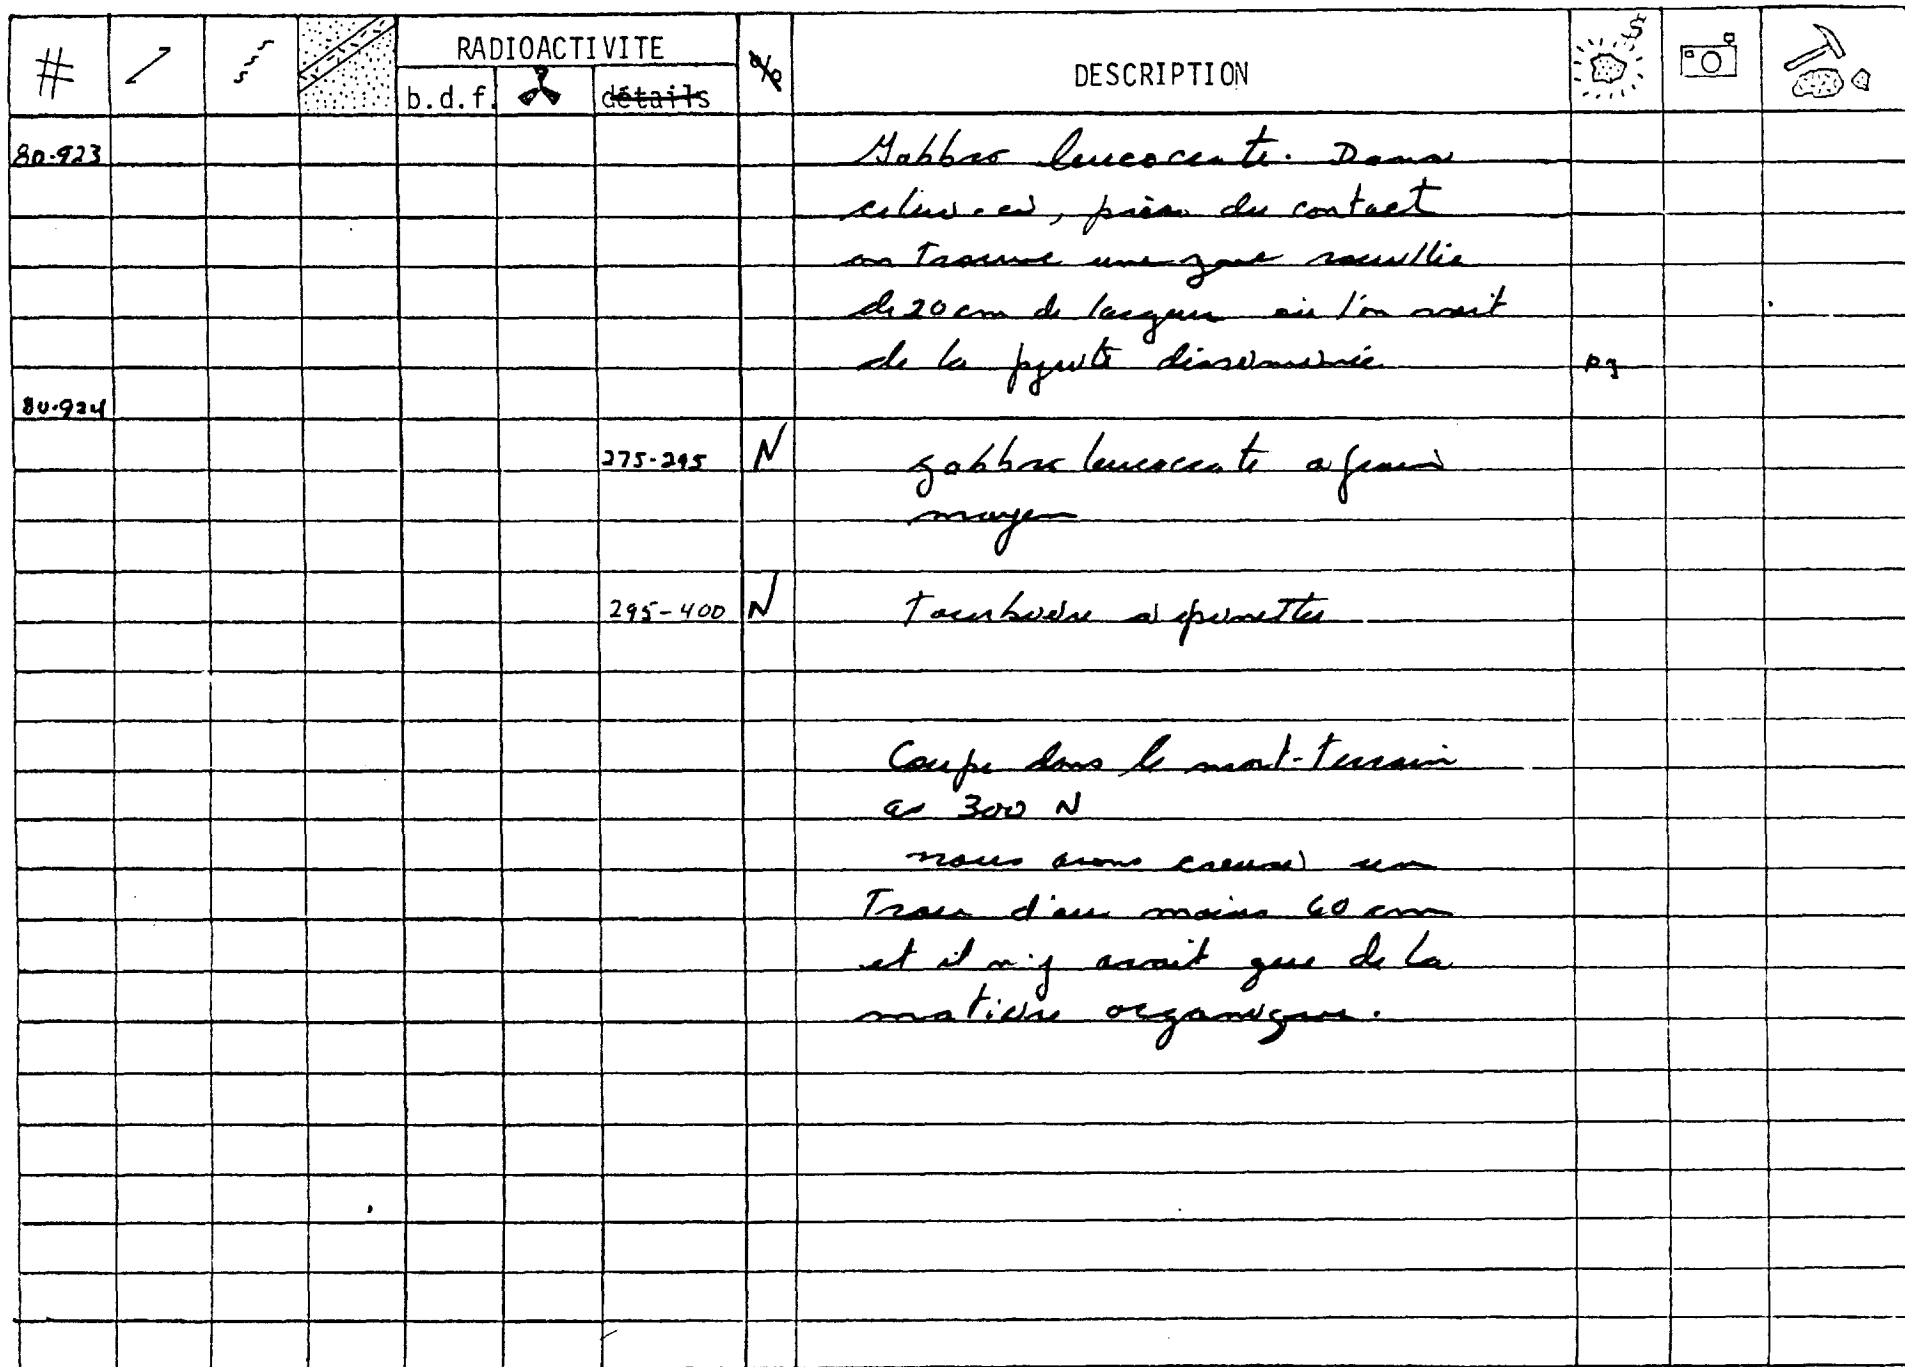 # RADIOACTIVITE % DESCRIPTION S
b.d.f. détails
80-923 Gabbro leucocrate. Dans
celui-ci, près du contact
on trouve une zone rouillée
de 20 cm de largeur où l'on voit
de la pyrite disséminée py
80-924
275-295 N gabbro leucocrate a grain
moyen
295-400 N Tourbière à épinettes
Coupe dans le mort-terrain
a 300 N
nous avons creusé un
Trou d'au moins 60 cm
et il n'y avait que de la
matière organique.